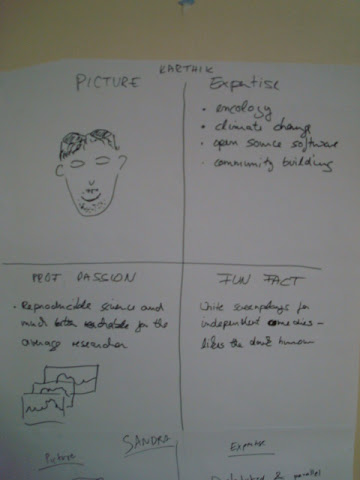 KARTHIK
PICTURE
Expertise
• encology
• climate change
• open source software
• community building
PROF PASSION
• Reproducible science and
much better for the
average researcher
FUN FACT
Write screenplays for
independent comedies –
likes the dark humor
SANDRA
Picture
Expertise
& parallel